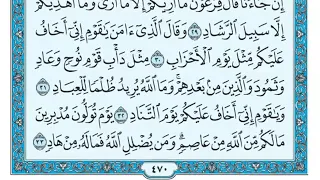 إِن جَآءَنَا قَالَ فِرْعَوْنُ مَآ أُرِيكُمْ إِلَّا مَآ أَرَىٰ وَمَآ أَهْدِيكُمْ
إِلَّا سَبِيلَ ٱلرَّشَادِ ٢٩ وَقَالَ ٱلَّذِىٓ ءَامَنَ يَٰقَوْمِ إِنِّىٓ أَخَافُ
عَلَيْكُم مِّثْلَ يَوْمِ ٱلْأَحْزَابِ ٣٠ مِثْلَ دَأْبِ قَوْمِ نُوحٍ وَعَادٍ
وَثَمُودَ وَٱلَّذِينَ مِنۢ بَعْدِهِمْ وَمَا ٱللَّهُ يُرِيدُ ظُلْمًا لِّلْعِبَادِ ٣١
وَيَٰقَوْمِ إِنِّىٓ أَخَافُ عَلَيْكُمْ يَوْمَ ٱلتَّنَادِ ٣٢ يَوْمَ تُوَلُّونَ مُدْبِرِينَ
مَا لَكُم مِّنَ ٱللَّهِ مِنْ عَاصِمٍ وَمَن يُضْلِلِ ٱللَّهُ فَمَا لَهُۥ مِنْ هَادٍ ٣٣
٤٧٠